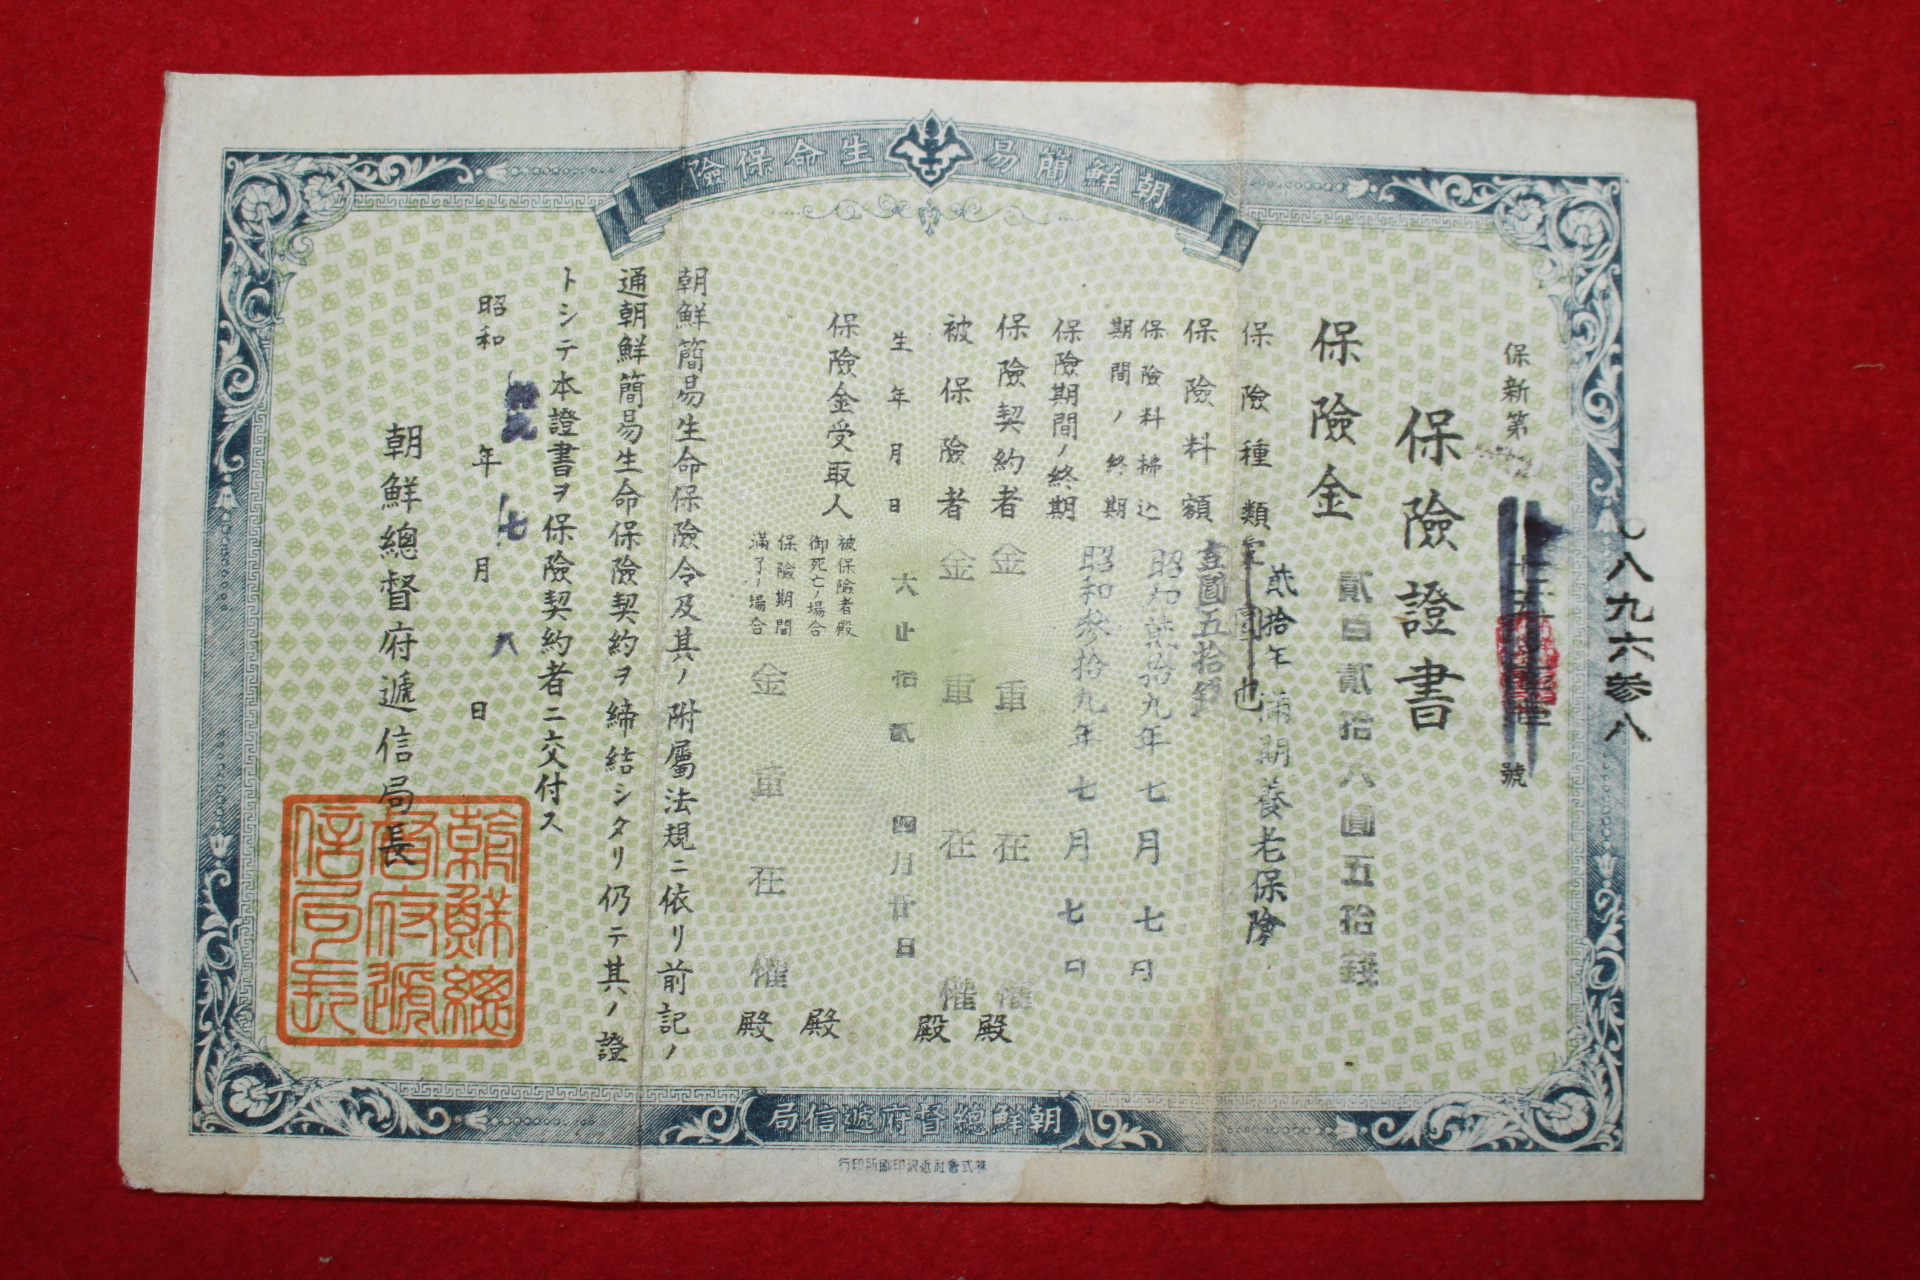 朝鮮簡易生命保險
〇八九六参八
保新第
號
保險證書
保險金 貳百貳拾六圓五拾錢
保險種類 貳拾年満期養老保險
保險料額 壹圓五拾錢
保險料拂込
期間ノ終期 昭和貳拾九年七月七日
保險期間ノ終期 昭和參拾九年七月七日
保險契約者 金重在 殿
被保險者 金重在㒛 殿
生年月日 大正拾貳四月廿日
保險金受取人
被保險者殿
御死亡ノ場合 殿
保險期間
滿了ノ場合 金重在 殿
朝鮮簡易生命保險令及其ノ附屬法規ニ依リ前記ノ
通朝鮮簡易生命保險契約ヲ締結シタリ仍テ其ノ證
トシテ本證書ヲ保險契約者ニ交付ス
昭和 年七月八日
朝鮮總督府遞信局長
朝鮮總督府遞信局長
朝鮮總督府遞信局
株式會社近澤印刷所印行